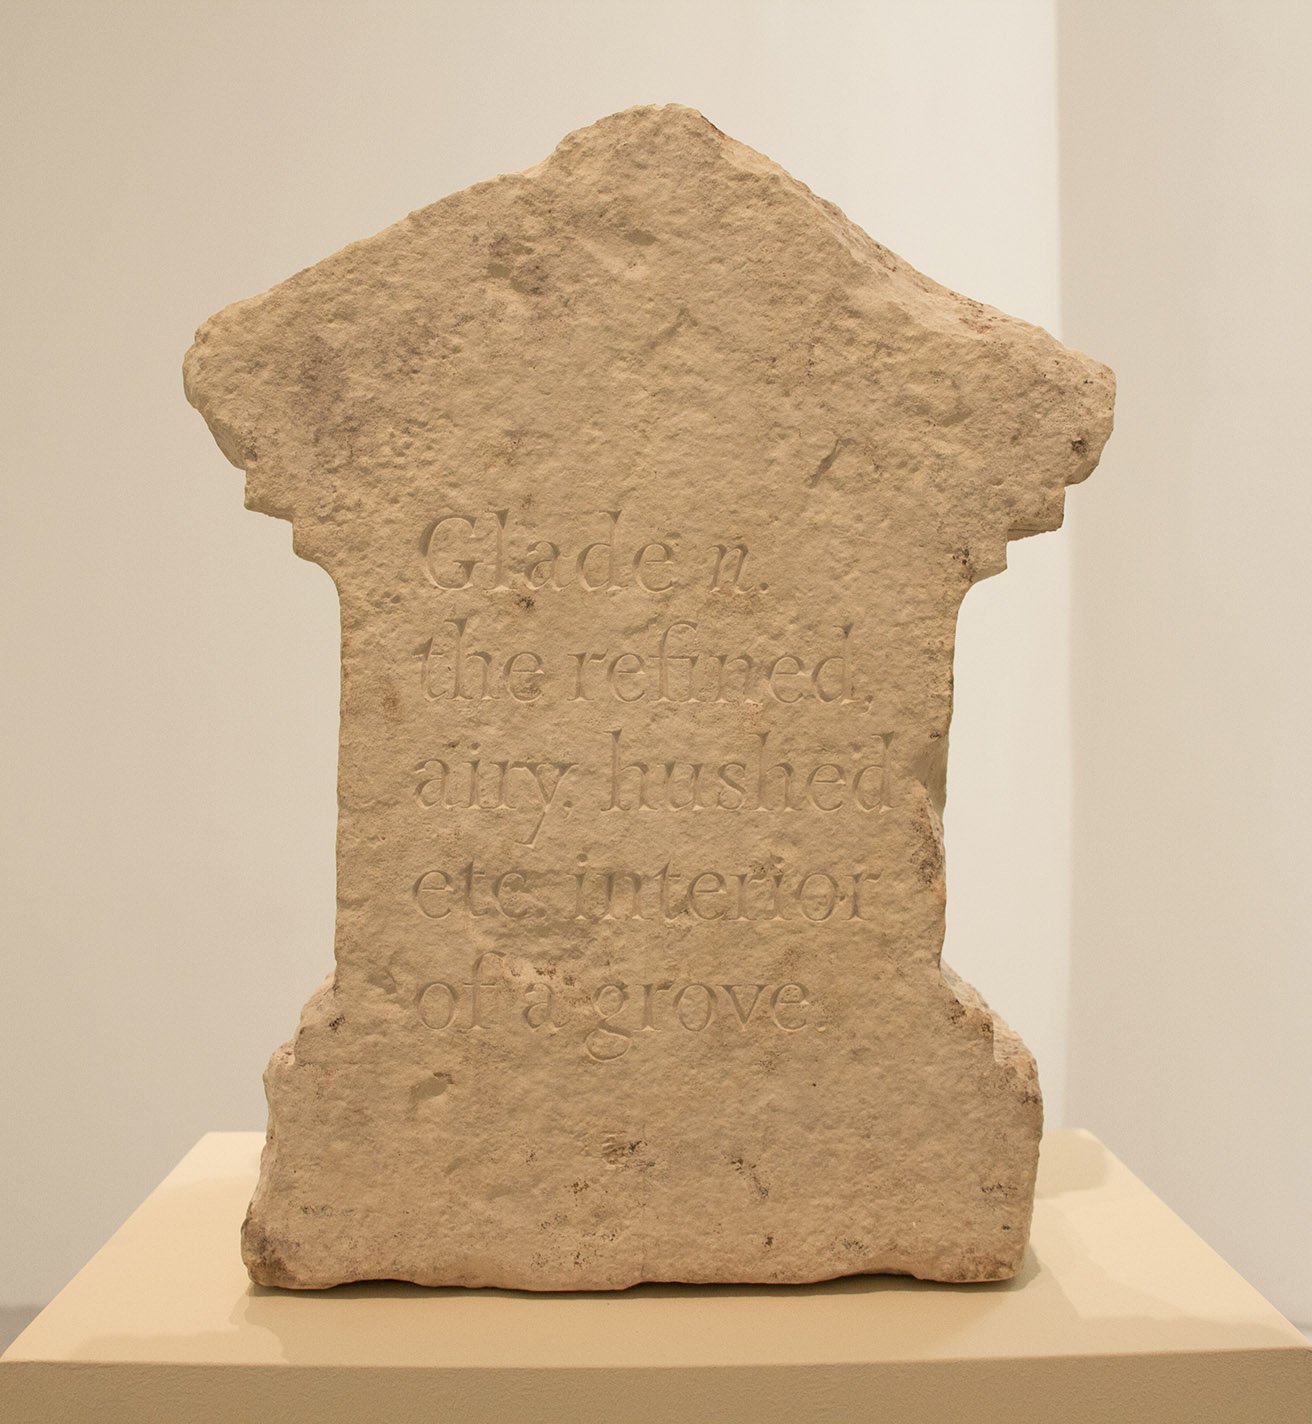 Glade n.
the refined,
airy, hushed
etc. interior
of a grove.